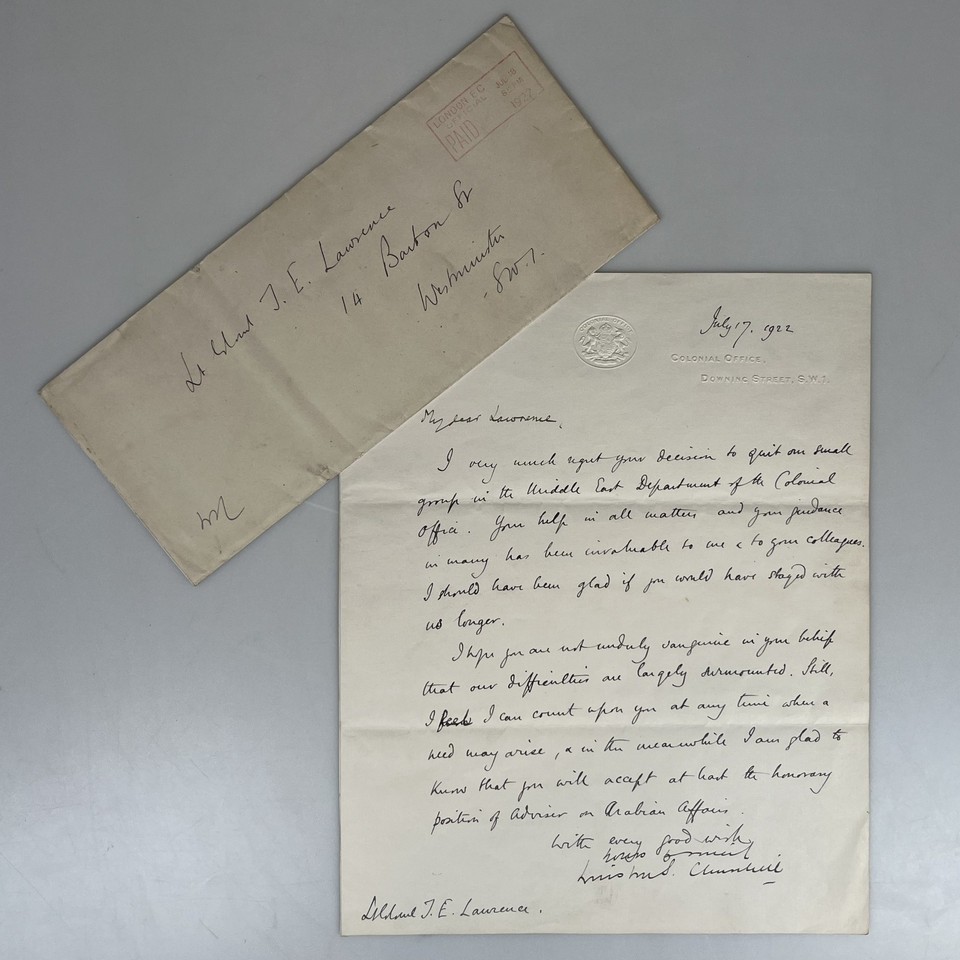 LONDON E.C.
OFFICIAL
PAID
1937
Lt Colonel T. E. Lawrence
14 Barton St
Westminster
S.W.1.
COLONIAL OFFICE
July 17. 1922
COLONIAL OFFICE,
DOWNING STREET, S.W.1.
My dear Lawrence,
I very much regret your decision to quit our small
group in the Middle East Department of the Colonial
Office. Your help in all matters and your guidance
in many has been invaluable to me & to your colleagues.
I should have been glad if you would have stayed with
us longer.
I hope you are not unduly sanguine in your belief
that our difficulties are largely surmounted. Still,
I feel I can count upon you at any time when a
need may arise, & in the meanwhile I am glad to
know that you will accept at least the honorary
position of Adviser on Arabian Affairs.
With every good wish
Yours
Winston S. Churchill
Lt Colonel T. E. Lawrence.